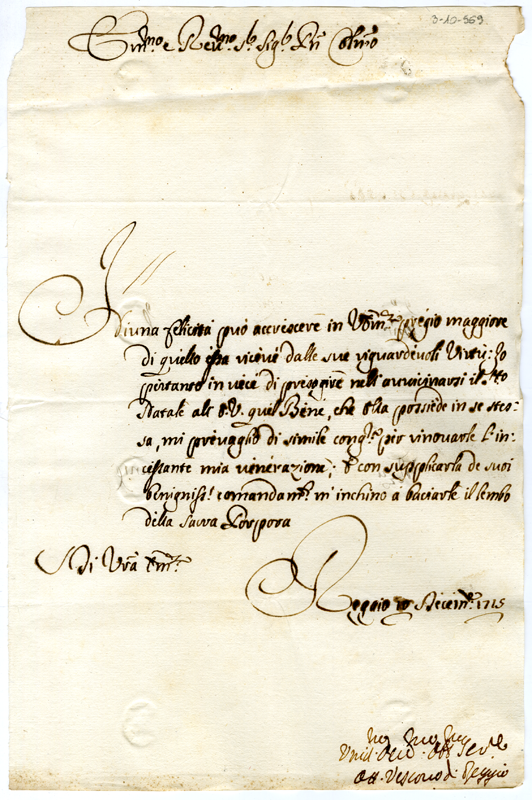 3-10-569
Em̃mo e Revmo Sr Sigr Prñ Colmo
Niuna felicità può accrescere in V. Em̃za pregio maggiore
di quello essa riceve dalle sue riguardevoli Virtù: Io
pertanto in vece di pregogire nell'avvicinarsi il Sto
Natale all' E.V. quel Bene, che Ella possiede in se stes-
sa, mi prevaglio di simile congra per rinovarle l'in-
cessante mia venerazione; E con supplicarla de suoi
benignissi comandamti m'inchino a baciarle il lembo
della Sacra Porpora
Di Vrã Em̃za
Reggio Dicembre 1715
Umil Devo Obb Serre
Ott. Vescovo di Reggio